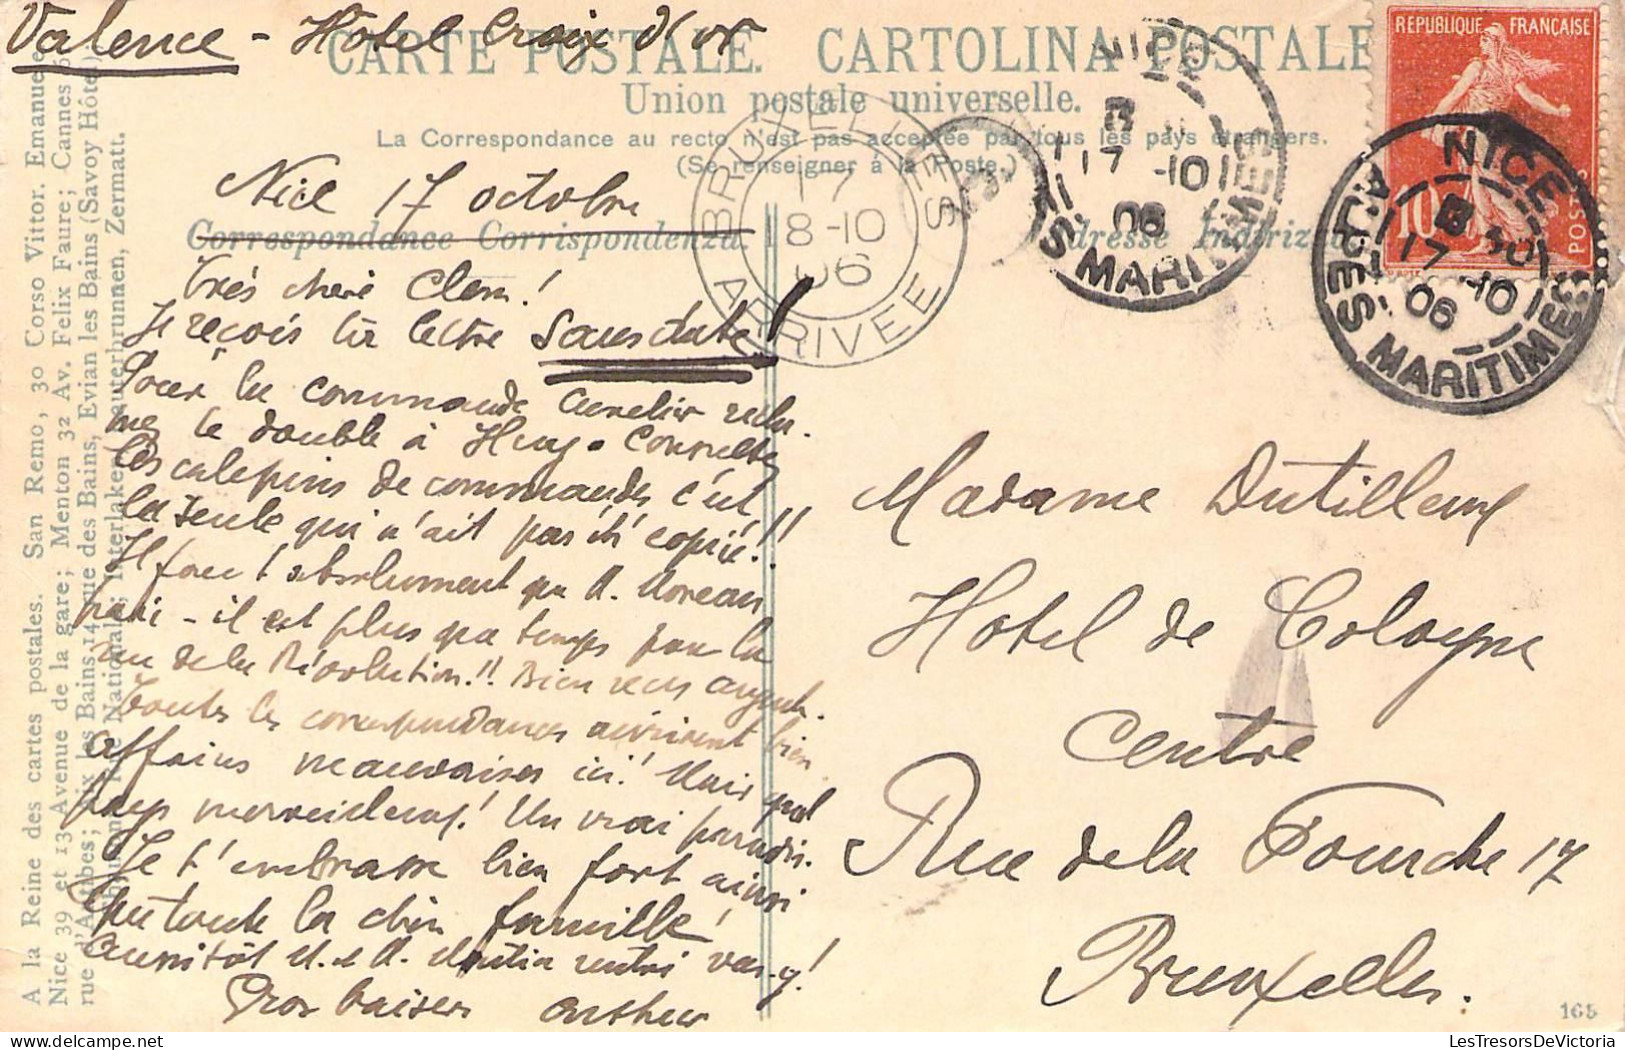 Valence - Hôtel Croix d'or
CARTE POSTALE. CARTOLINA POSTALE
Union postale universelle.
La Correspondance au recto n'est pas acceptée par tous les pays étrangers.
(Se renseigner à la Poste.)
Nice 17 octobre
Correspondance Corrispondenza.
Très cheré Clem!
Je reçois ta lettre sans date!
Pour la commande
le double à Huy. Consulte
les calepins de commandes c'est
la seule qui n'ait pas été copié!!
Il faut absolument que M. Moreau
- il est plus que temps pour la
rue de la Révolution!! Bien reçu argent.
Toutes les correspondances arrivent bien
Affaires mauvaises ici! Mais quel
pays merveilleux! Un vrai paradis.
Je t'embrasse bien fort ainsi
que toute la chère famille!
Aussitôt M. et M. rentré vas-y!
Gros baisers Arthur
Adresse Indirizzo
Madame Dutilleux
Hotel de Cologne
Centre
Rue de la Fourche 17
Bruxelles.
165
REPUBLIQUE FRANÇAISE
10
POSTES
NICE
17 -10
06
ALPES MARITIMES
NICE
17 -10
06
ALPES MARITIMES
BRUXELLES
17
8-10
06
ARRIVEE
A la Reine des cartes postales. San Remo, 30 Corso Vittor. Emanuele
Nice 39 et 13 Avenue de la gare; Menton 32 Av. Felix Faure; Cannes
rue d'Antibes; Aix les Bains 14 rue des Bains, Evian les Bains (Savoy Hôtel)
Rue Nationale; Interlaken, Lauterbrunnen, Zermatt.
LesTresorsDeVictoria